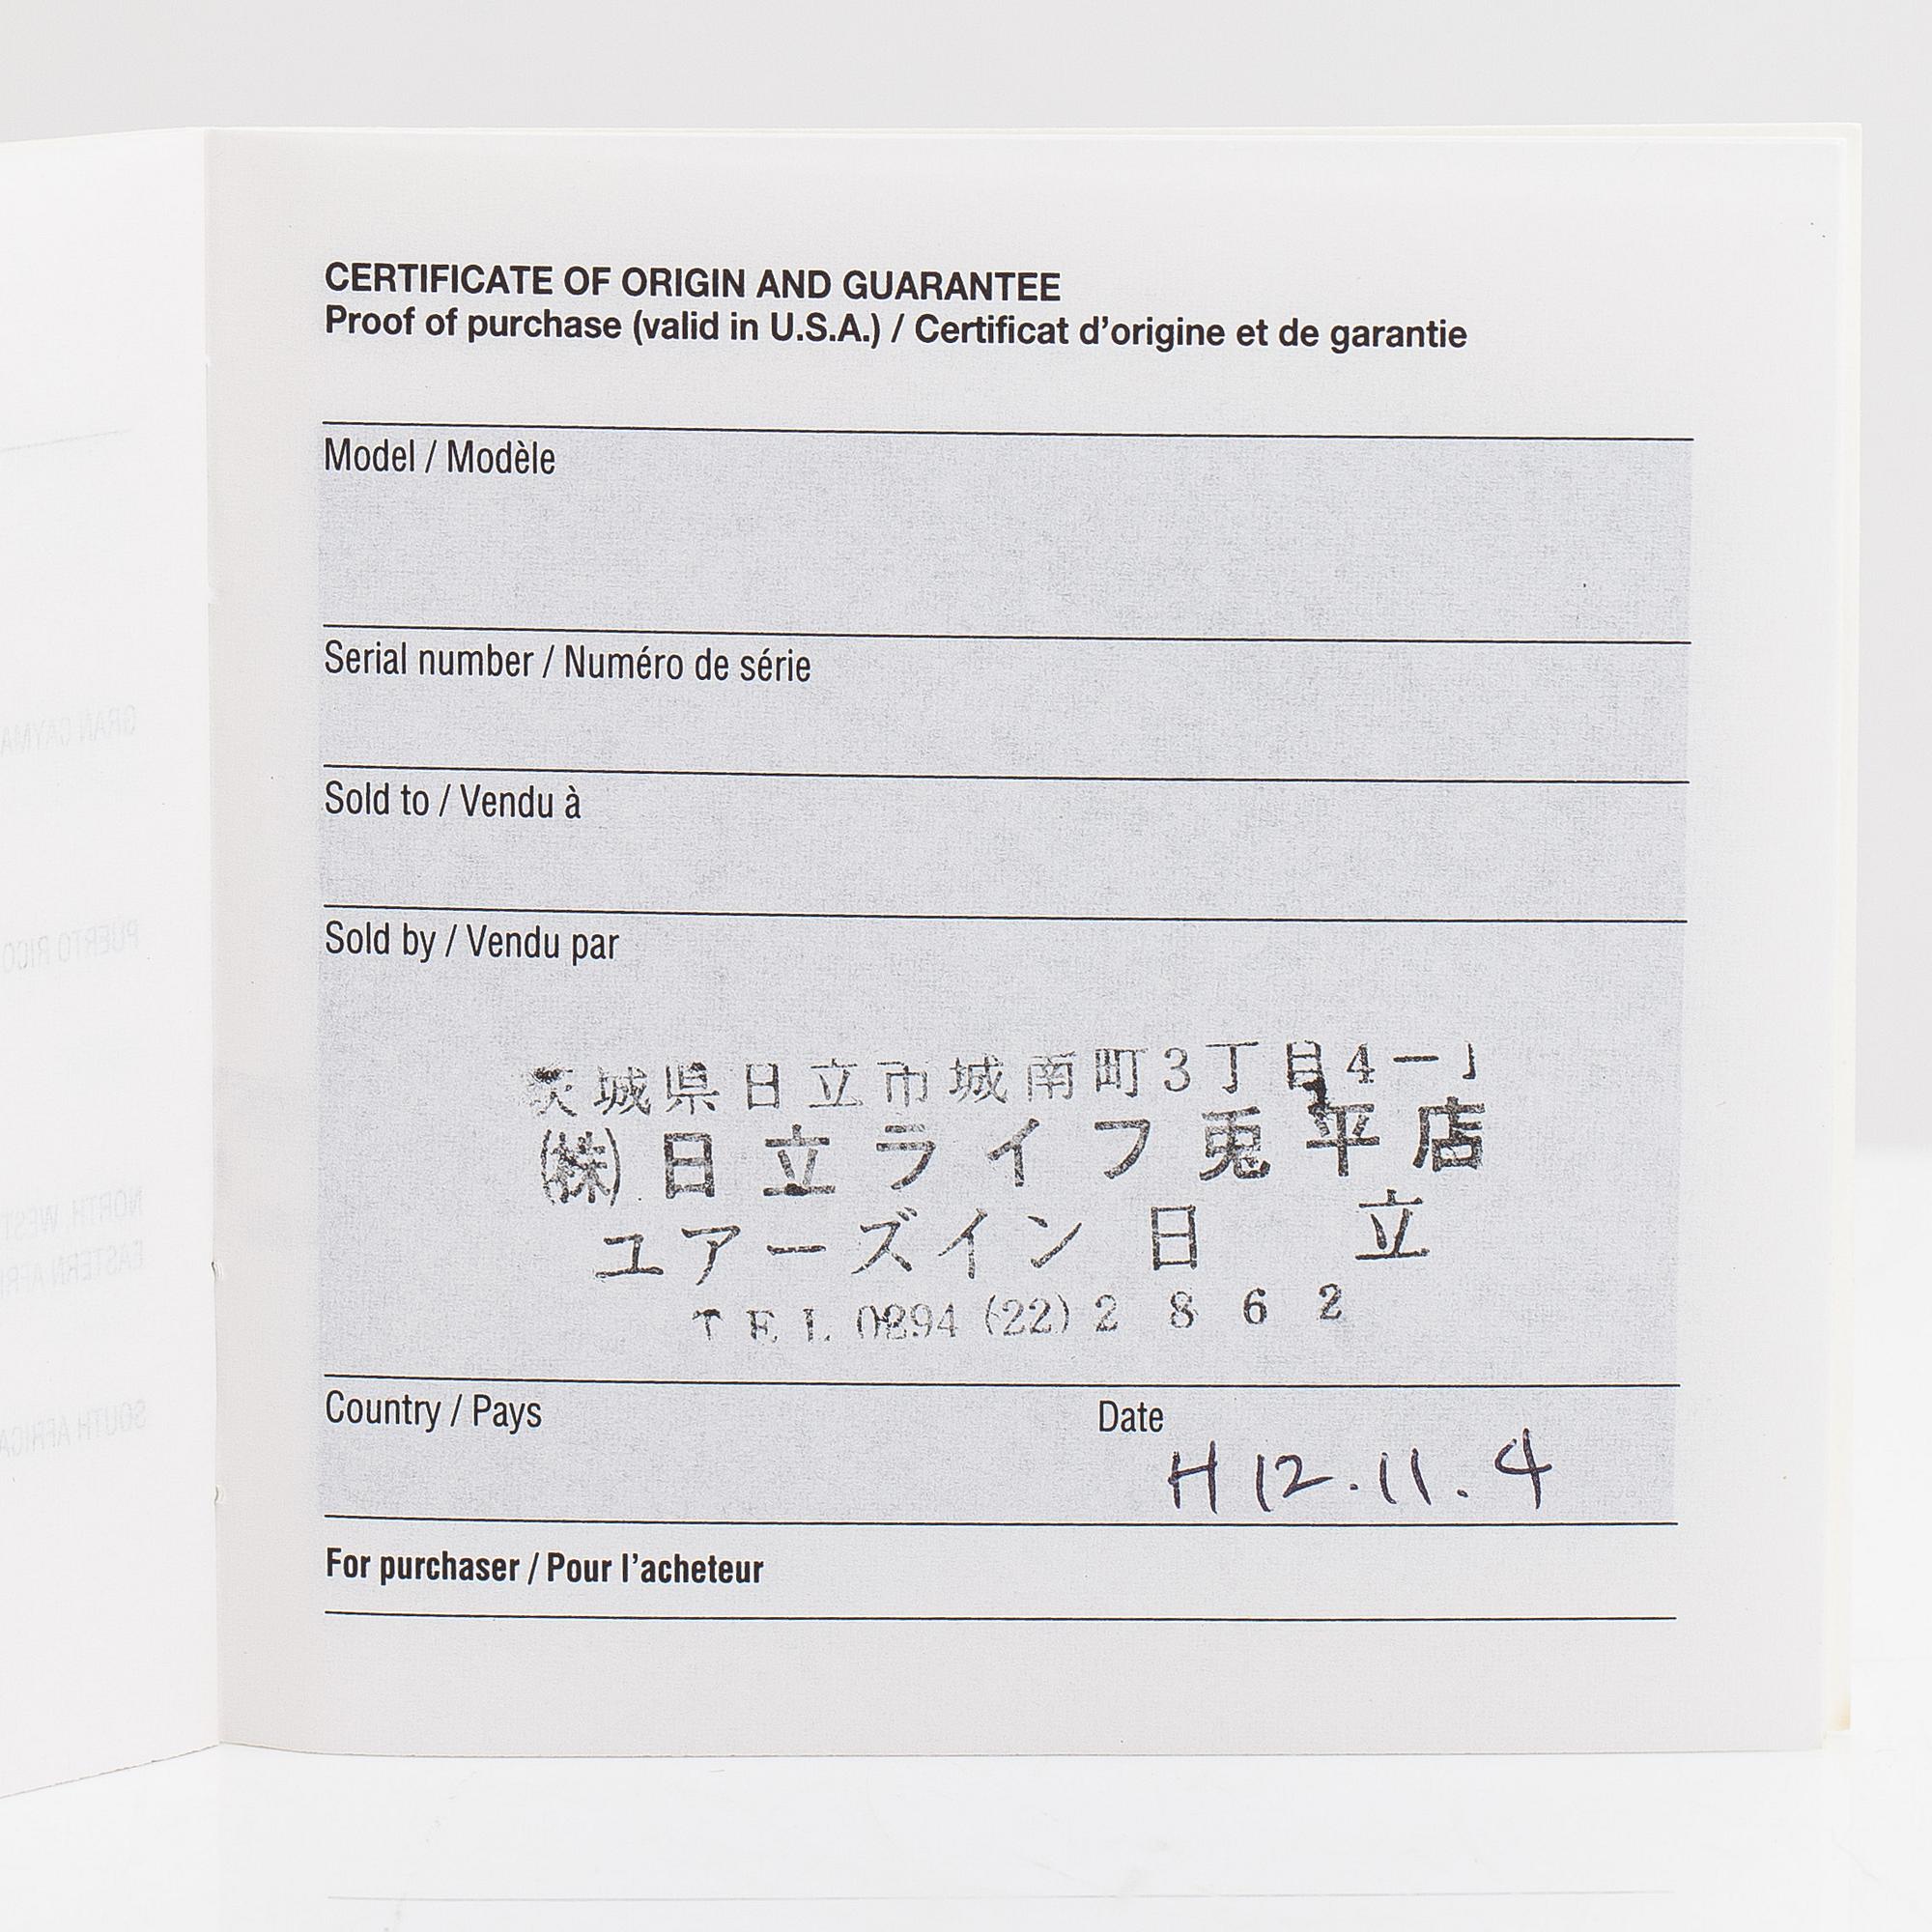 CERTIFICATE OF ORIGIN AND GUARANTEE
Proof of purchase (valid in U.S.A.) / Certificat d'origine et de garantie
Model / Modèle
Serial number / Numéro de série
Sold to / Vendu à
Sold by / Vendu par
茨城県日立市城南町3丁目4ー1
(株)日立ライフ兎平店
ユアーズイン日 立
TEL 0294 (22) 2862
Country / Pays
Date
H12.11.4
For purchaser / Pour l'acheteur
GRAN CAYMA
PUERTO RICO
NORTH, WEST
EASTERN AFRI
SOUTH AFRICA